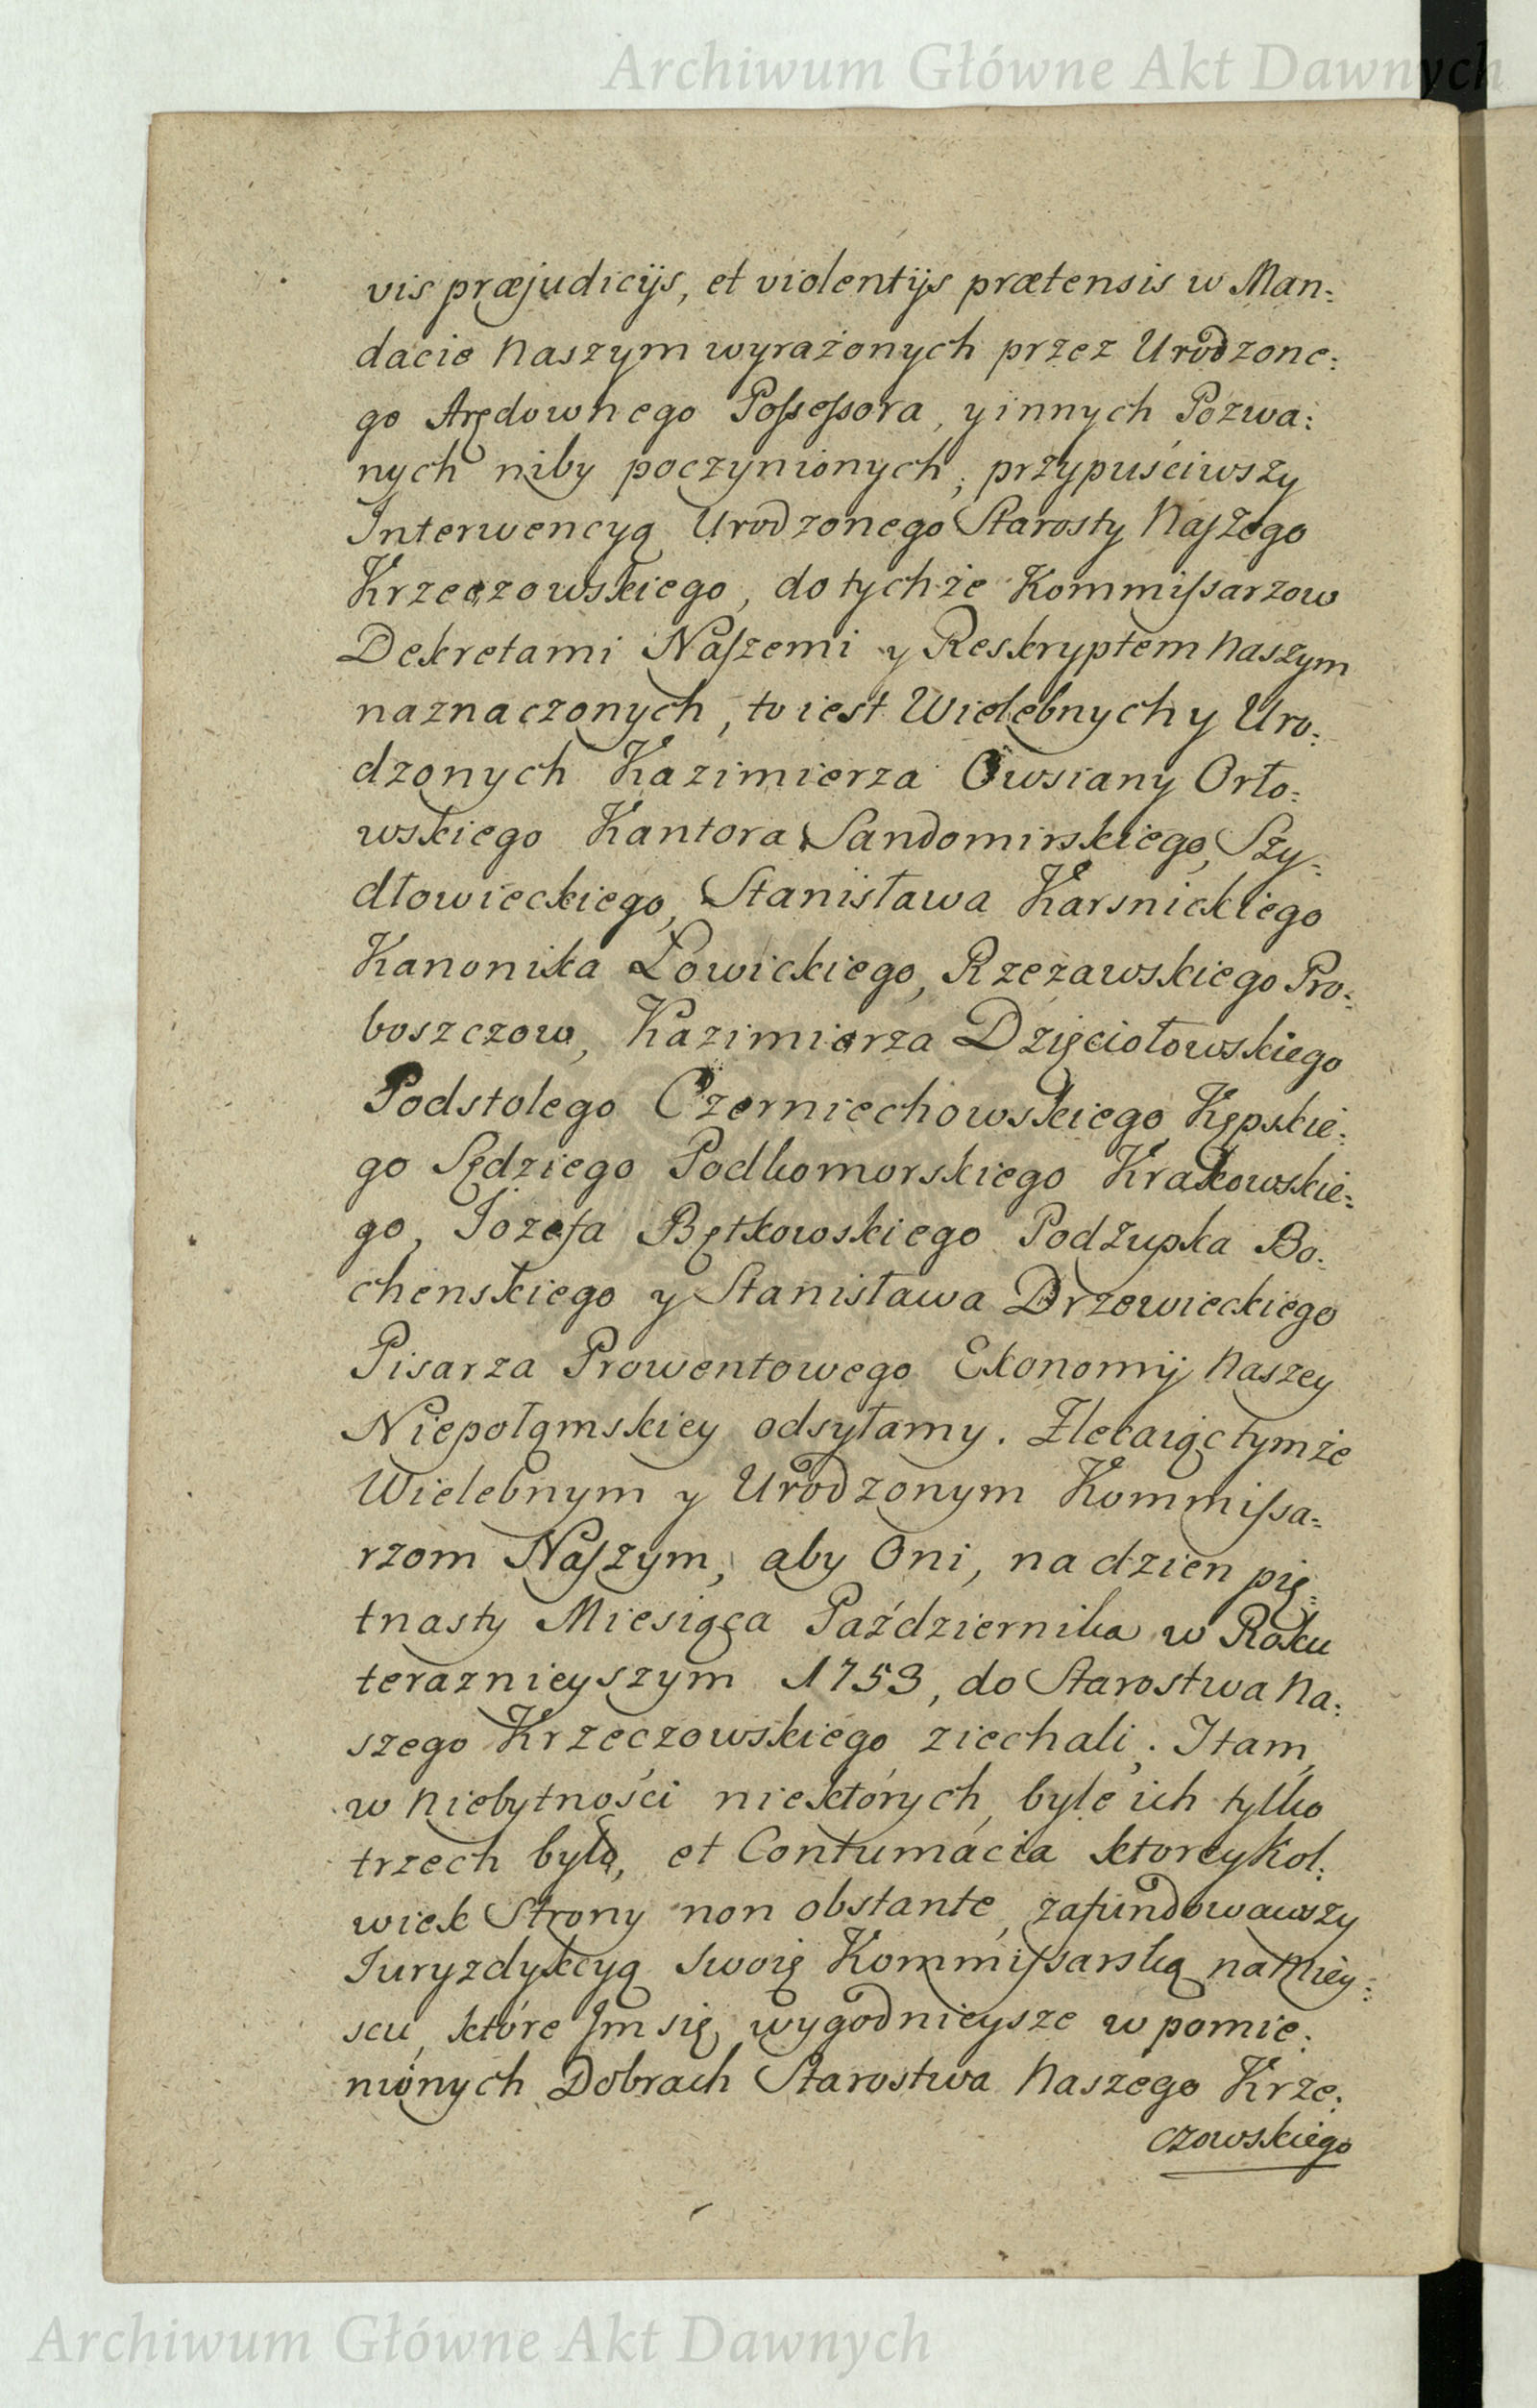 Archiwum Główne Akt Dawnych
vis præjudicijs, et violentijs prætensis w Man:
dacie Naszym wyrażonych przez Urodzone:
go Arędownego Possessora, y innych Pozwa:
nych niby poczynionych, przypuściwszy
Interwencyą Urodzonego Starosty Naszego
Krzeczowskiego, do tychże Kommissarzow
Dekretami Naszemi y Reskryptem Naszym
naznaczonych, to iest Wielebnych y Uro:
dzonych Kazimierza Owsiany Orło:
wskiego Kantora Sandomirskiego, Szy:
dłowieckiego, Stanisława Karsnickiego
Kanonika Łowickiego, Rzezawskiego Pro:
boszczow, Kazimierza Dzięciołowskiego
Podstolego Czerniechowskiego Kępskie:
go Sędziego Podkomorskiego Krakowskie:
go, Jozefa Bętkowskiego Podżupka Bo:
chenskiego y Stanisława Drzewieckiego
Pisarza Prowentowego Ekonomij Naszey
Niepołąmskiey odsyłamy. Zlecaiąc tymże
Wielebnym y Urodzonym Kommissa:
rzom Naszym, aby Oni, na dzien pię:
tnasty Miesiąca Października w Roku
teraznieyszym 1753, do Starostwa Na:
szego Krzeczowskiego ziechali. I tam,
w niebytności niektórych, byle ich tylko
trzech było, et Contumacia ktoreykol:
wiek Strony non obstante, zafundowawszy
Iuryzdykcyą swoię Kommissarską na Miey:
scu, które Im się wygodnieysze w pomie:
nionych Dobrach Starostwa Naszego Krze:
czowskiego
Archiwum Główne Akt Dawnych